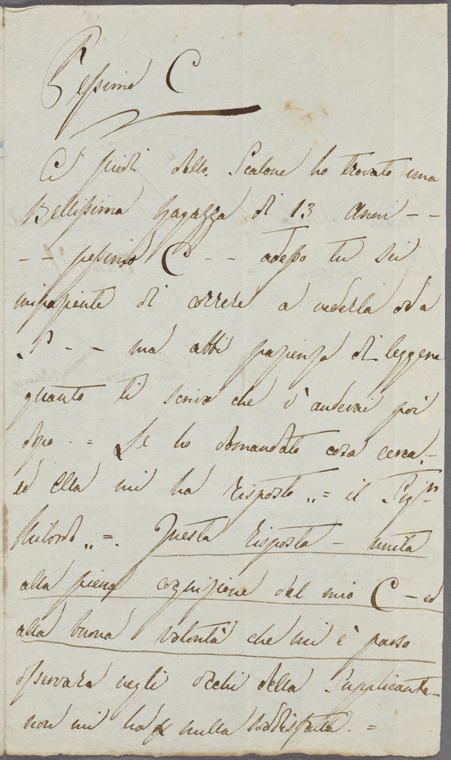 Pessimo C
A' piedi dello Scalone ho trovato una
Bellissima ragazza di 13 Anni - -
- - pessimo C - - adesso tu sei
impaziente di correre a vederla od a
P - - ma abbi pazienza di leggere
quanto ti scrivo che v'anderai poi
dopo. = Le ho domandato cosa cerca -
ed Ella mi ha risposto „ = il Sigr
Milord „ =. Questa risposta - unita
alla piena cognizione del mio C - ed
alla buona volontà che mi è parso
osservare negli occhi della Supplicante -
non mi ha nulla soddisfatta. =